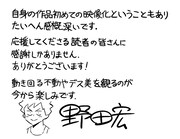 自身の作品初めての映像化ということもあり
たいへん感慨深いです。
応援してくださる読者の皆さんに
感謝しかありません。
ありがとうございます！
動き回る不動やデス美を観るのが
今から楽しみです。
野田宏